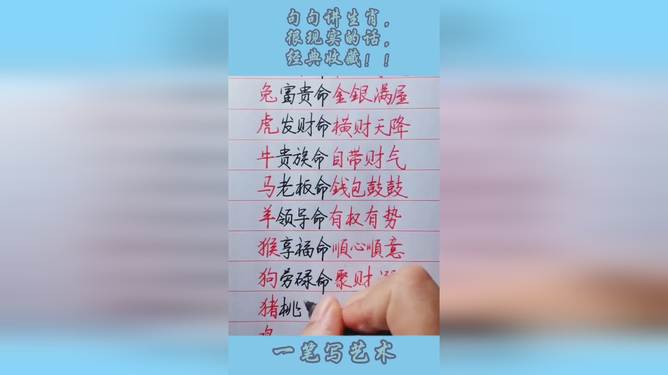 句句讲生肖，
很现实的话，
经典收藏！！
兔富贵命金银满屋
虎发财命横财天降
牛贵族命自带财气
马老板命钱包鼓鼓
羊领导命有权有势
猴享福命順心順意
狗劳碌命聚财
猪桃
一笔写艺术